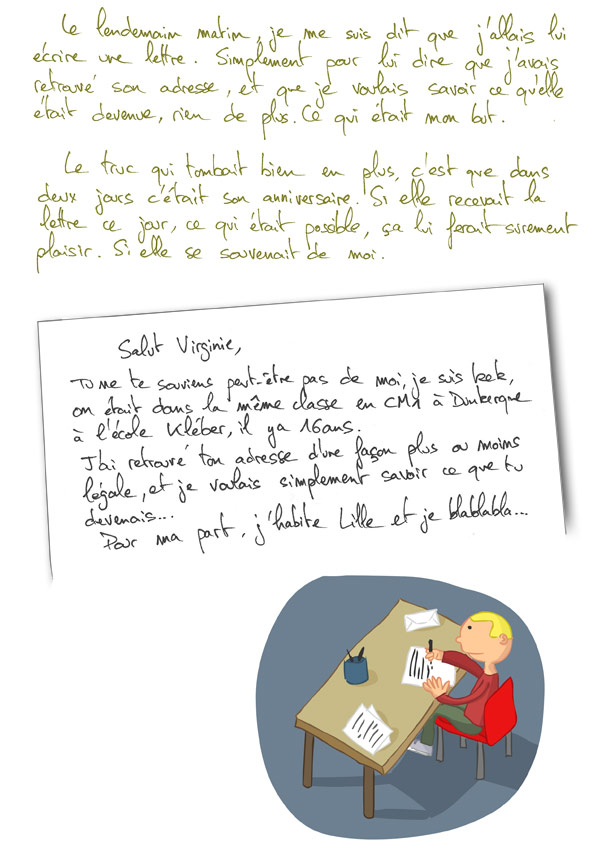 Le lendemain matin, je me suis dit que j'allais lui
écrire une lettre. Simplement pour lui dire que j'avais
retrouvé son adresse, et que je voulais savoir ce qu'elle
était devenue, rien de plus. Ce qui était mon but.
Le truc qui tombait bien en plus, c'est que dans
deux jours c'était son anniversaire. Si elle recevait la
lettre ce jour, ce qui était possible, ça lui ferait surement
plaisir. Si elle se souvenait de moi.
Salut Virginie,
Tu me te souviens peut-être pas de moi, je suis kek,
on était dans la même classe en CM1 à Dunkerque
à l'école Kléber, il y a 16 ans.
J'ai retrouvé ton adresse d'une façon plus ou moins
légale, et je voulais simplement savoir ce que tu
devenais...
Pour ma part, j'habite Lille et je blablabla...